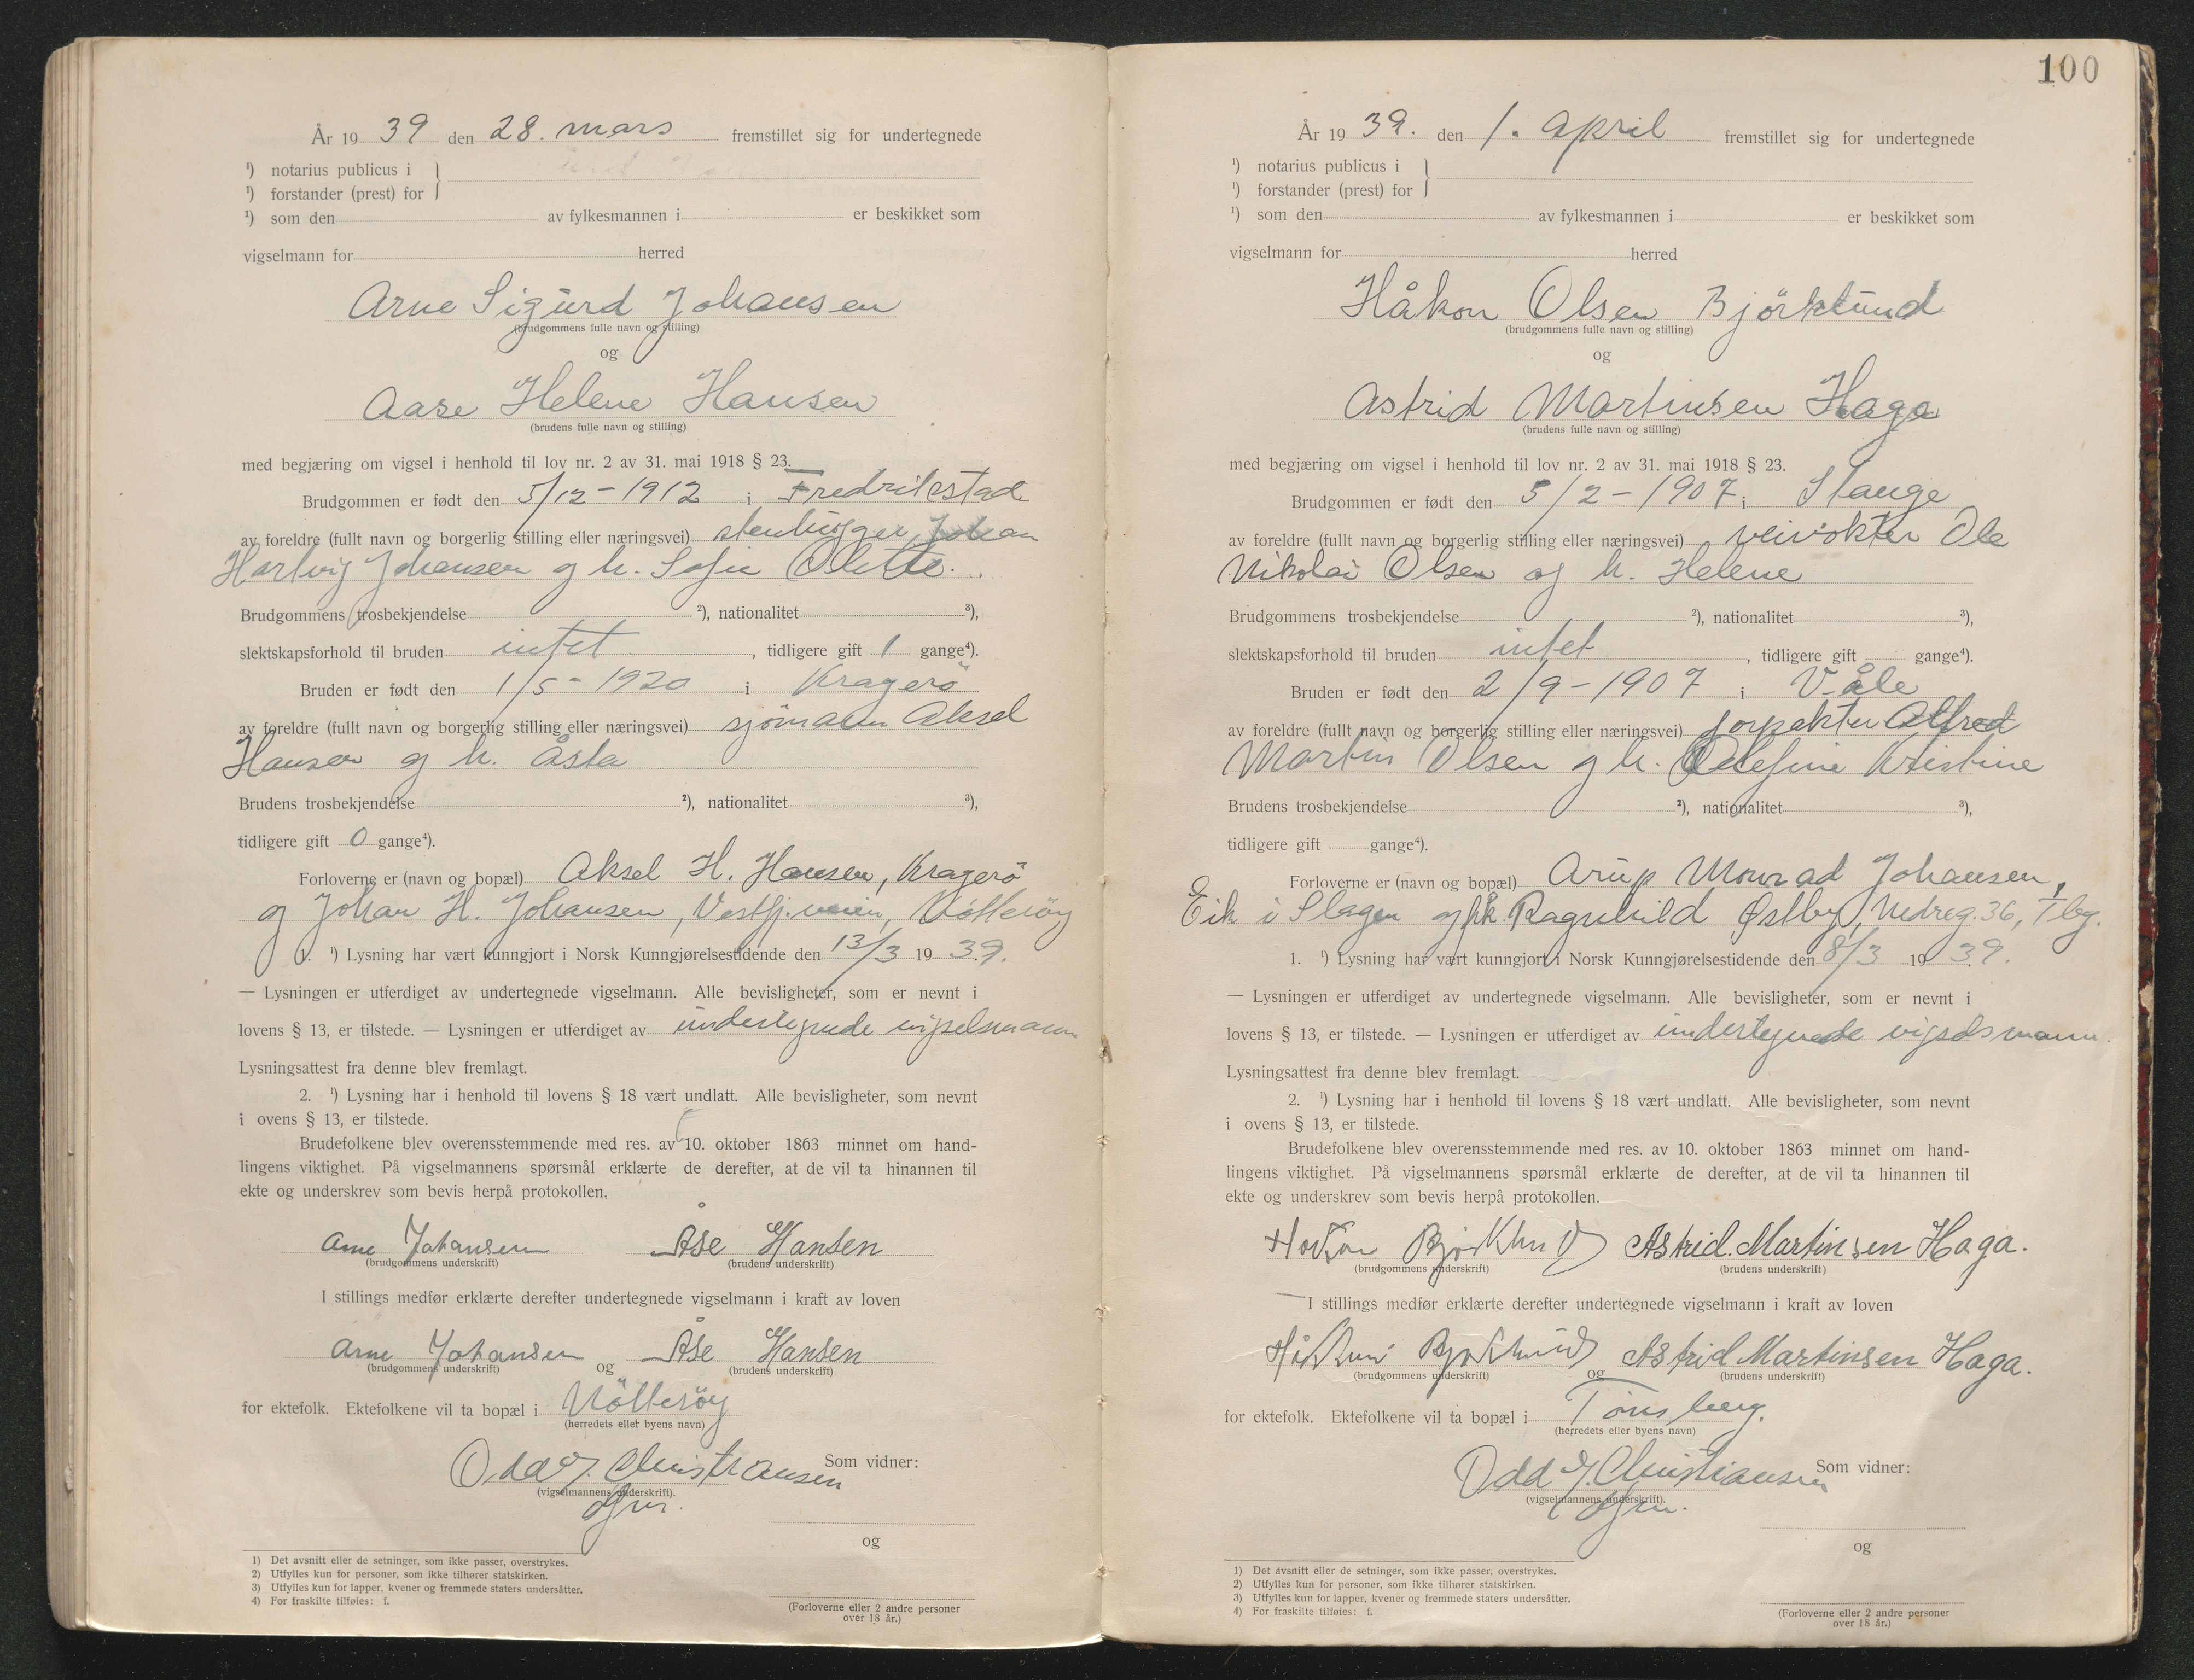 År 19 39 den 28. mars fremstillet sig for undertegnede
¹) notarius publicus i
¹) forstander (prest) for
¹) som den av fylkesmannen i er beskikket som
vigselmann for herred
Arne Sigurd Johansen
(brudgommens fulle navn og stilling)
og
Aase Helene Hansen
(brudens fulle navn og stilling)
med begjæring om vigsel i henhold til lov nr. 2 av 31. mai 1918 § 23.
Brudgommen er født den 5/12-1912 i Fredrikstad
av foreldre (fullt navn og borgerlig stilling eller næringsvei) stenhugger Johan
Hartvig Johansen og h. Sofie Olette.
Brudgommens trosbekjendelse ²), nationalitet ³),
slektskapsforhold til bruden intet, tidligere gift 1 gange⁴).
Bruden er født den 1/5-1920 i Kragerö
av foreldre (fullt navn og borgerlig stilling eller næringsvei) sjömann Aksel
Hansen og h. Åsta
Brudens trosbekjendelse ²), nationalitet ³),
tidligere gift 0 gange⁴).
Forloverne er (navn og bopæl) Aksel H. Hansen, Kragerö
og Johan H. Johansen, Vestfj.veien, Nötteröy
1. ¹) Lysning har vært kunngjort i Norsk Kunngjørelsestidende den 13/3 19 39.
— Lysningen er utferdiget av undertegnede vigselmann. Alle bevisligheter, som er nevnt i
lovens § 13, er tilstede. — Lysningen er utferdiget av undertegnede vigselsmann
Lysningsattest fra denne blev fremlagt.
2. ¹) Lysning har i henhold til lovens § 18 vært undlatt. Alle bevisligheter, som nevnt
i ovens § 13, er tilstede.
Brudefolkene blev overensstemmende med res. av 10. oktober 1863 minnet om hand-
lingens viktighet. På vigselmannens spørsmål erklærte de derefter, at de vil ta hinannen til
ekte og underskrev som bevis herpå protokollen.
Arne Johansen Åse Hansen
(brudgommens underskrift) (brudens underskrift)
I stillings medfør erklærte derefter undertegnede vigselmann i kraft av loven
Arne Johansen og Åse Hansen
(brudgommens underskrift) (brudens underskrift)
for ektefolk. Ektefolkene vil ta bopæl i Nötteröy
(herredets eller byens navn)
Odd J. Christiansen
(vigselmannens underskrift).
Som vidner:
og
1) Det avsnitt eller de setninger, som ikke passer, overstrykes.
2) Utfylles kun for personer, som ikke tilhører statskirken.
3) Utfylles kun for lapper, kvener og fremmede staters undersåtter.
4) For fraskilte tilføies: f.
(Forloverne eller 2 andre personer
over 18 år.)
100
År 19 39. den 1. april fremstillet sig for undertegnede
¹) notarius publicus i
¹) forstander (prest) for
¹) som den av fylkesmannen i er beskikket som
vigselmann for herred
Håkon Olsen Björklund
(brudgommens fulle navn og stilling)
og
Astrid Martinsen Haga
(brudens fulle navn og stilling)
med begjæring om vigsel i henhold til lov nr. 2 av 31. mai 1918 § 23.
Brudgommen er født den 5/2-1907 i Stange
av foreldre (fullt navn og borgerlig stilling eller næringsvei) veivokter Ole
Nikolai Olsen og h. Helene
Brudgommens trosbekjendelse ²), nationalitet ³),
slektskapsforhold til bruden intet, tidligere gift gange⁴).
Bruden er født den 2/9-1907 i Våle
av foreldre (fullt navn og borgerlig stilling eller næringsvei) forpakter Alfred
Martin Olsen og h. Olefine Kristine
Brudens trosbekjendelse ²), nationalitet ³),
tidligere gift gange⁴).
Forloverne er (navn og bopæl) Arup Monrad Johansen,
Eik i Slagen og frk. Ragnhild Østby, Nedreg. 36, Tbg.
1. ¹) Lysning har vært kunngjort i Norsk Kunngjørelsestidende den 8/3 19 39.
— Lysningen er utferdiget av undertegnede vigselmann. Alle bevisligheter, som er nevnt i
lovens § 13, er tilstede. — Lysningen er utferdiget av undertegnede vigselsmann.
Lysningsattest fra denne blev fremlagt.
2. ¹) Lysning har i henhold til lovens § 18 vært undlatt. Alle bevisligheter, som nevnt
i ovens § 13, er tilstede.
Brudefolkene blev overensstemmende med res. av 10. oktober 1863 minnet om hand-
lingens viktighet. På vigselmannens spørsmål erklærte de derefter, at de vil ta hinannen til
ekte og underskrev som bevis herpå protokollen.
Håkon Bjørklund Astrid. Martinsen Haga.
(brudgommens underskrift) (brudens underskrift)
I stillings medfør erklærte derefter undertegnede vigselmann i kraft av loven
Håkon Bjørklund og Astrid Martinsen Haga.
(brudgommens underskrift) (brudens underskrift)
for ektefolk. Ektefolkene vil ta bopæl i Tönsberg.
(herredets eller byens navn)
Odd J. Christiansen
(vigselmannens underskrift).
Som vidner:
og
1) Det avsnitt eller de setninger, som ikke passer, overstrykes.
2) Utfylles kun for personer, som ikke tilhører statskirken.
3) Utfylles kun for lapper, kvener og fremmede staters undersåtter.
4) For fraskilte tilføies: f.
(Forloverne eller 2 andre personer
over 18 år.)